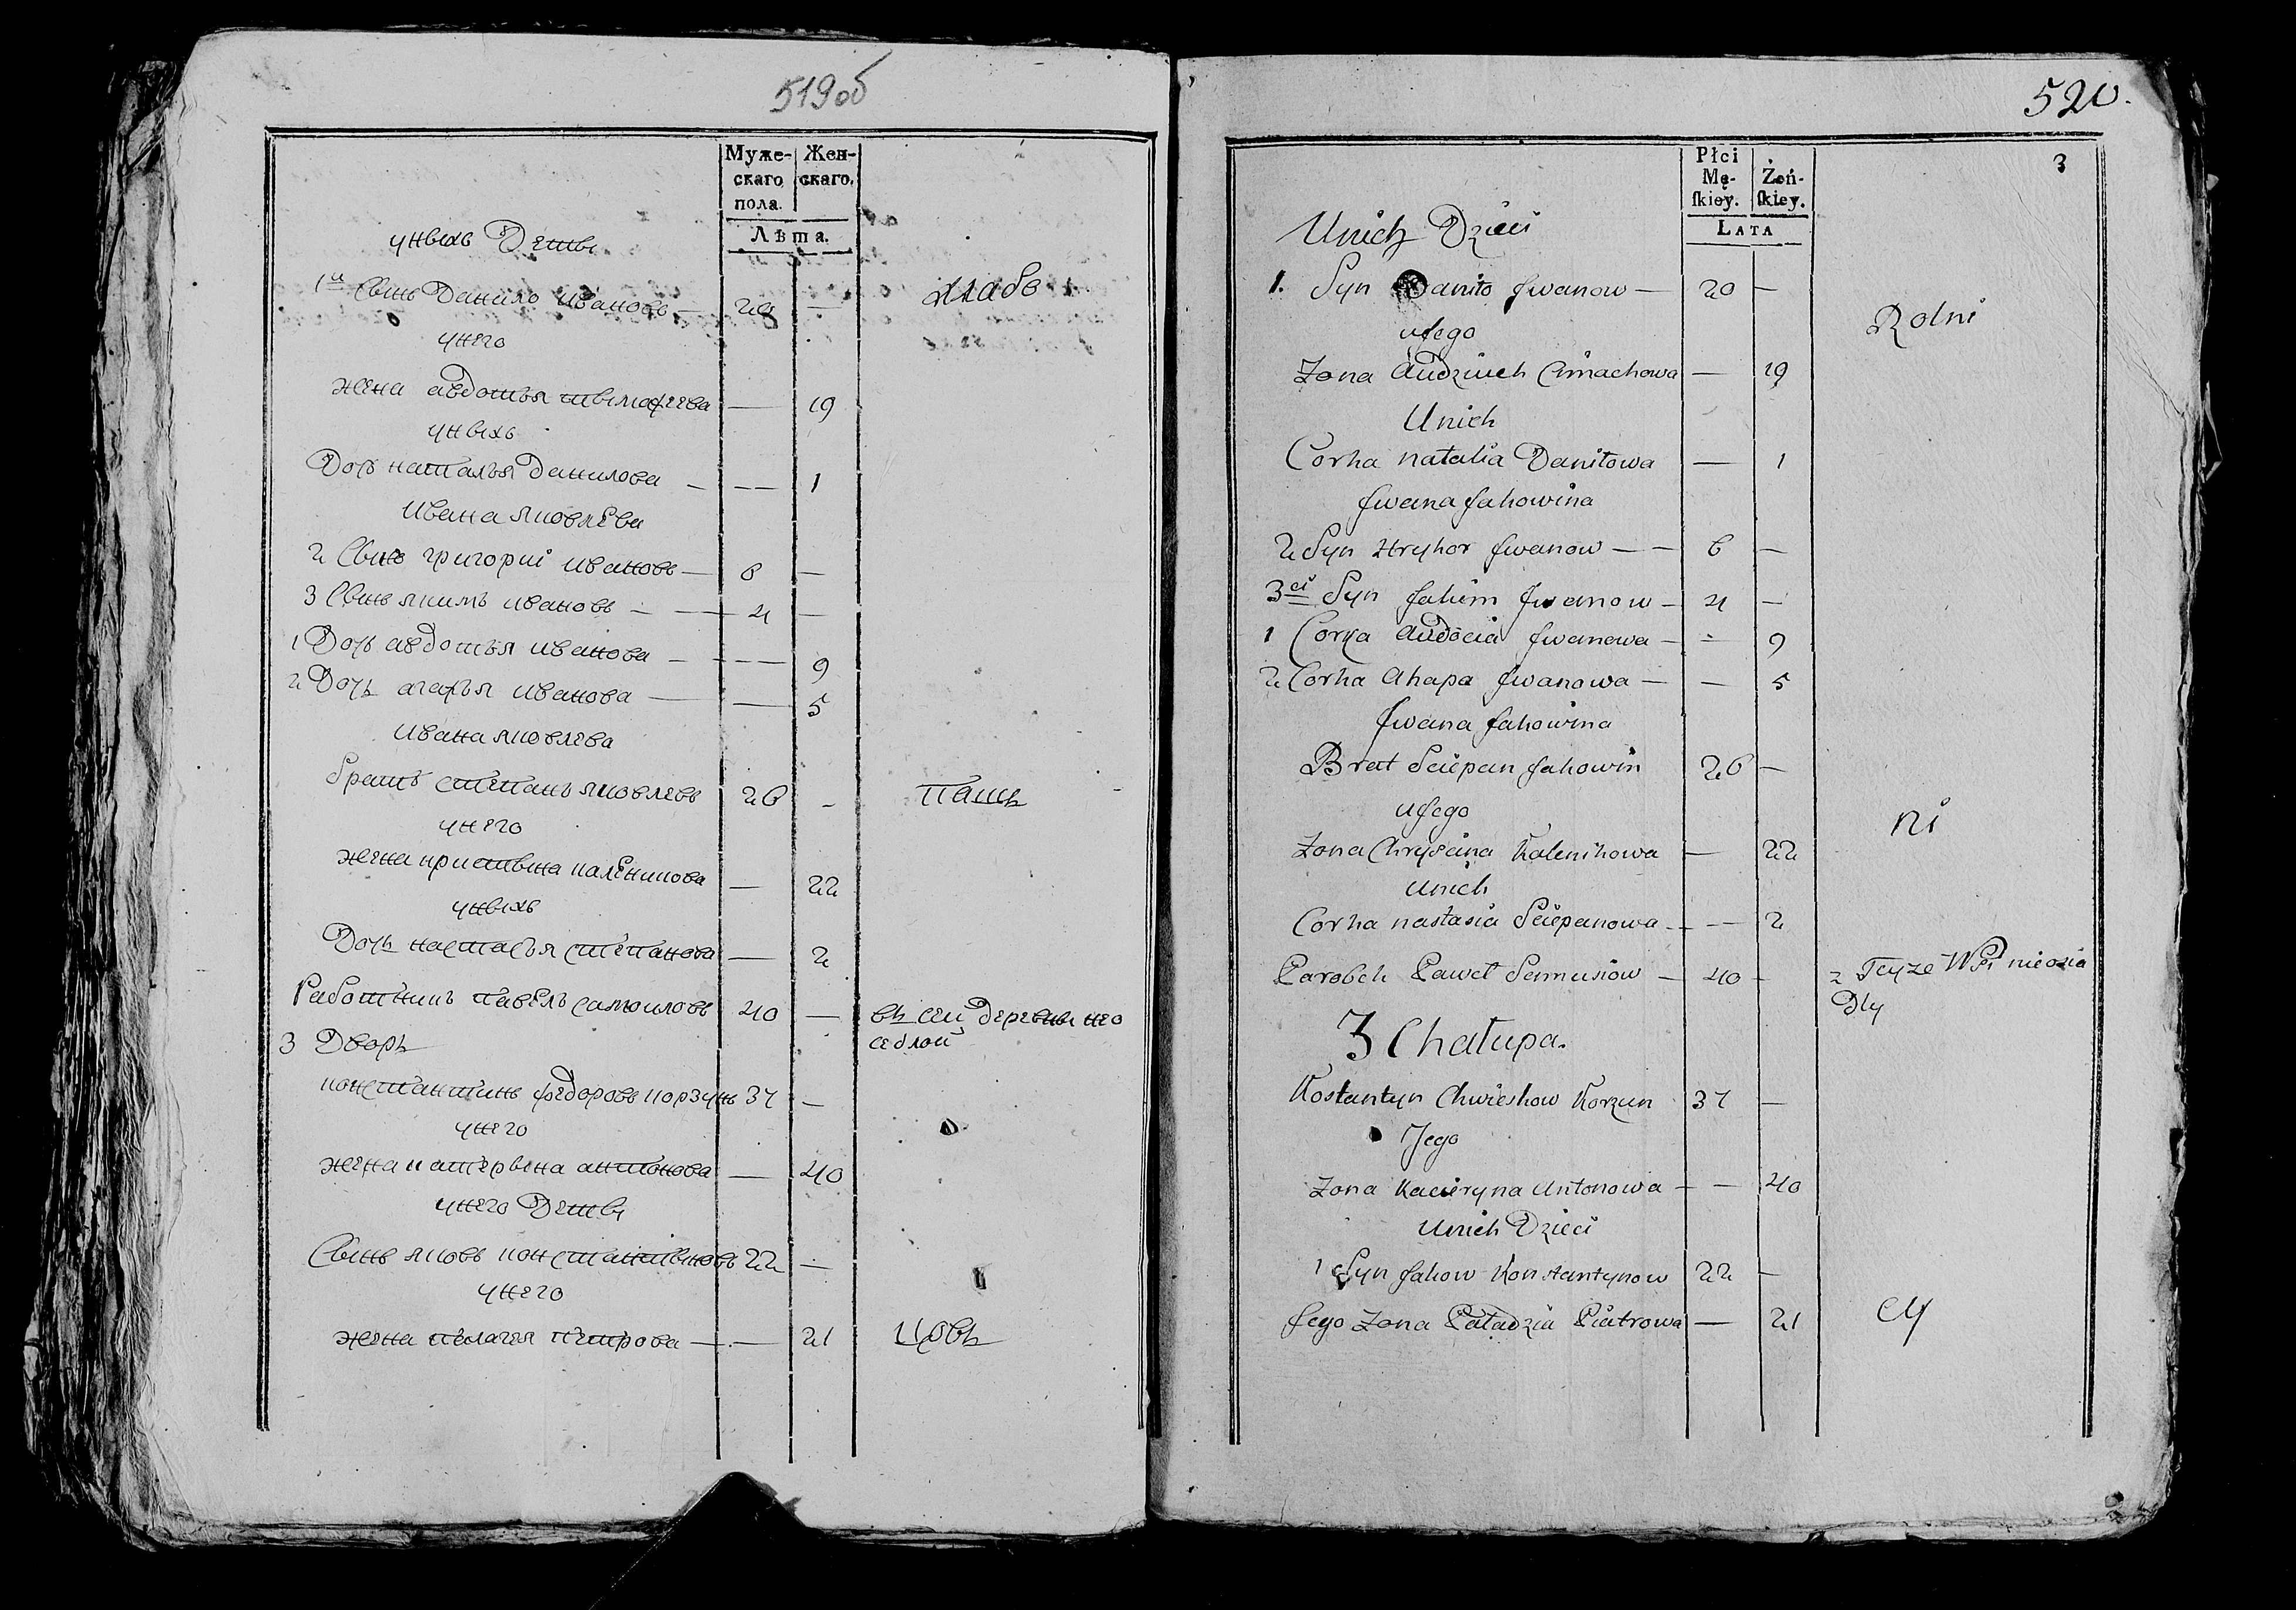 519об
Муже-
скаго
пола.
Жен-
скаго.
Лѣта.
унихъ Дети
1й Сынъ Данило Ивановъ — 20 —
хлебо
унего
жена авдотья тимофеева — 19
унихъ
Дочь наталья Данилова — — 1
Ивана яковлева
2 Сынъ григории Ивановъ — 6 —
3 Сынъ якимъ ивановъ — 4 —
1 Дочь авдотья иванова — — 9
2 Дочь агафья Иванова — — 5
Ивана яковлева
братъ степанъ яковлевъ 26 —
пашь
унего
жена кристина каленикова — 22
унихъ
Дочь настасья степанова — 2
Работникъ павелъ самоиловъ 40 — въ сеи деревни нео
седлой
3 Дворъ
константинъ федоровъ корзунъ 37 —
унего
жена катерина антонова — 40
унего Дети
Сынъ яковъ константиновъ 22 —
унего
жена пелагея петрова — — 21 цовъ
520.
3
Płci
Mę-
ſkiey.
Żeń-
ſkiey.
LATA
Unich Dzieci
1. Syn Daniło Jwanow — 20 —
Rolni
uJego
Zona Audziuch Cimachowa — 19
Unich
Corka natalia Daniłowa — 1
Jwana Jakowina
2 Syn Hryhor Jwanow — — 6 —
3ci Syn Jakim Jwanow — 4 —
1 Corka Audocia Jwanowa — — 9
2 Corka Ahapa Jwanowa — — 5
Jwana Jakowina
Brat Sciepan Jakowin 26 —
uJego
ni
Zona Chryscina Kalenikowa — 22
Unich
Corka nastasia Sciepanowa — — 2
Parobek Paweł Semusiow — 40 — z Teyze WSi nieosia
Dly
3 Chałupa.
Kostantyn Chwieskow Korzun 37 —
Jego
Zona Kacieryna Antonowa — — 40
Unich Dzieci
1 Syn Jakow Konstantynow 22 —
Jego Zona Paładzia Piatrowa — 21 cy